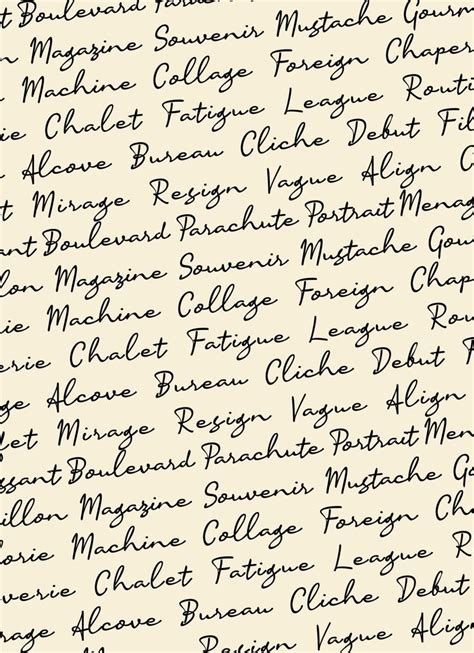 t Boulevard
n Magazine Souvenir Mustache Gourm
Machine Collage Foreign Chaper
rie Chalet Fatigue League Routi
Alcove Bureau Cliche Debut Fil
t Mirage Resign Vague Align C
sant Boulevard Parachute Portrait Menag
lon Magazine Souvenir Mustache Gou
rie Machine Collage Foreign Chap
erie Chalet Fatigue League Rou
ge Alcove Bureau Cliche Debut F
let Mirage Resign Vague Align
ssant Boulevard Parachute Portrait Mena
illon Magazine Souvenir Mustache Go
orie Machine Collage Foreign Cha
verie Chalet Fatigue League R
rage Alcove Bureau Cliche Debut
Resign Vague Align